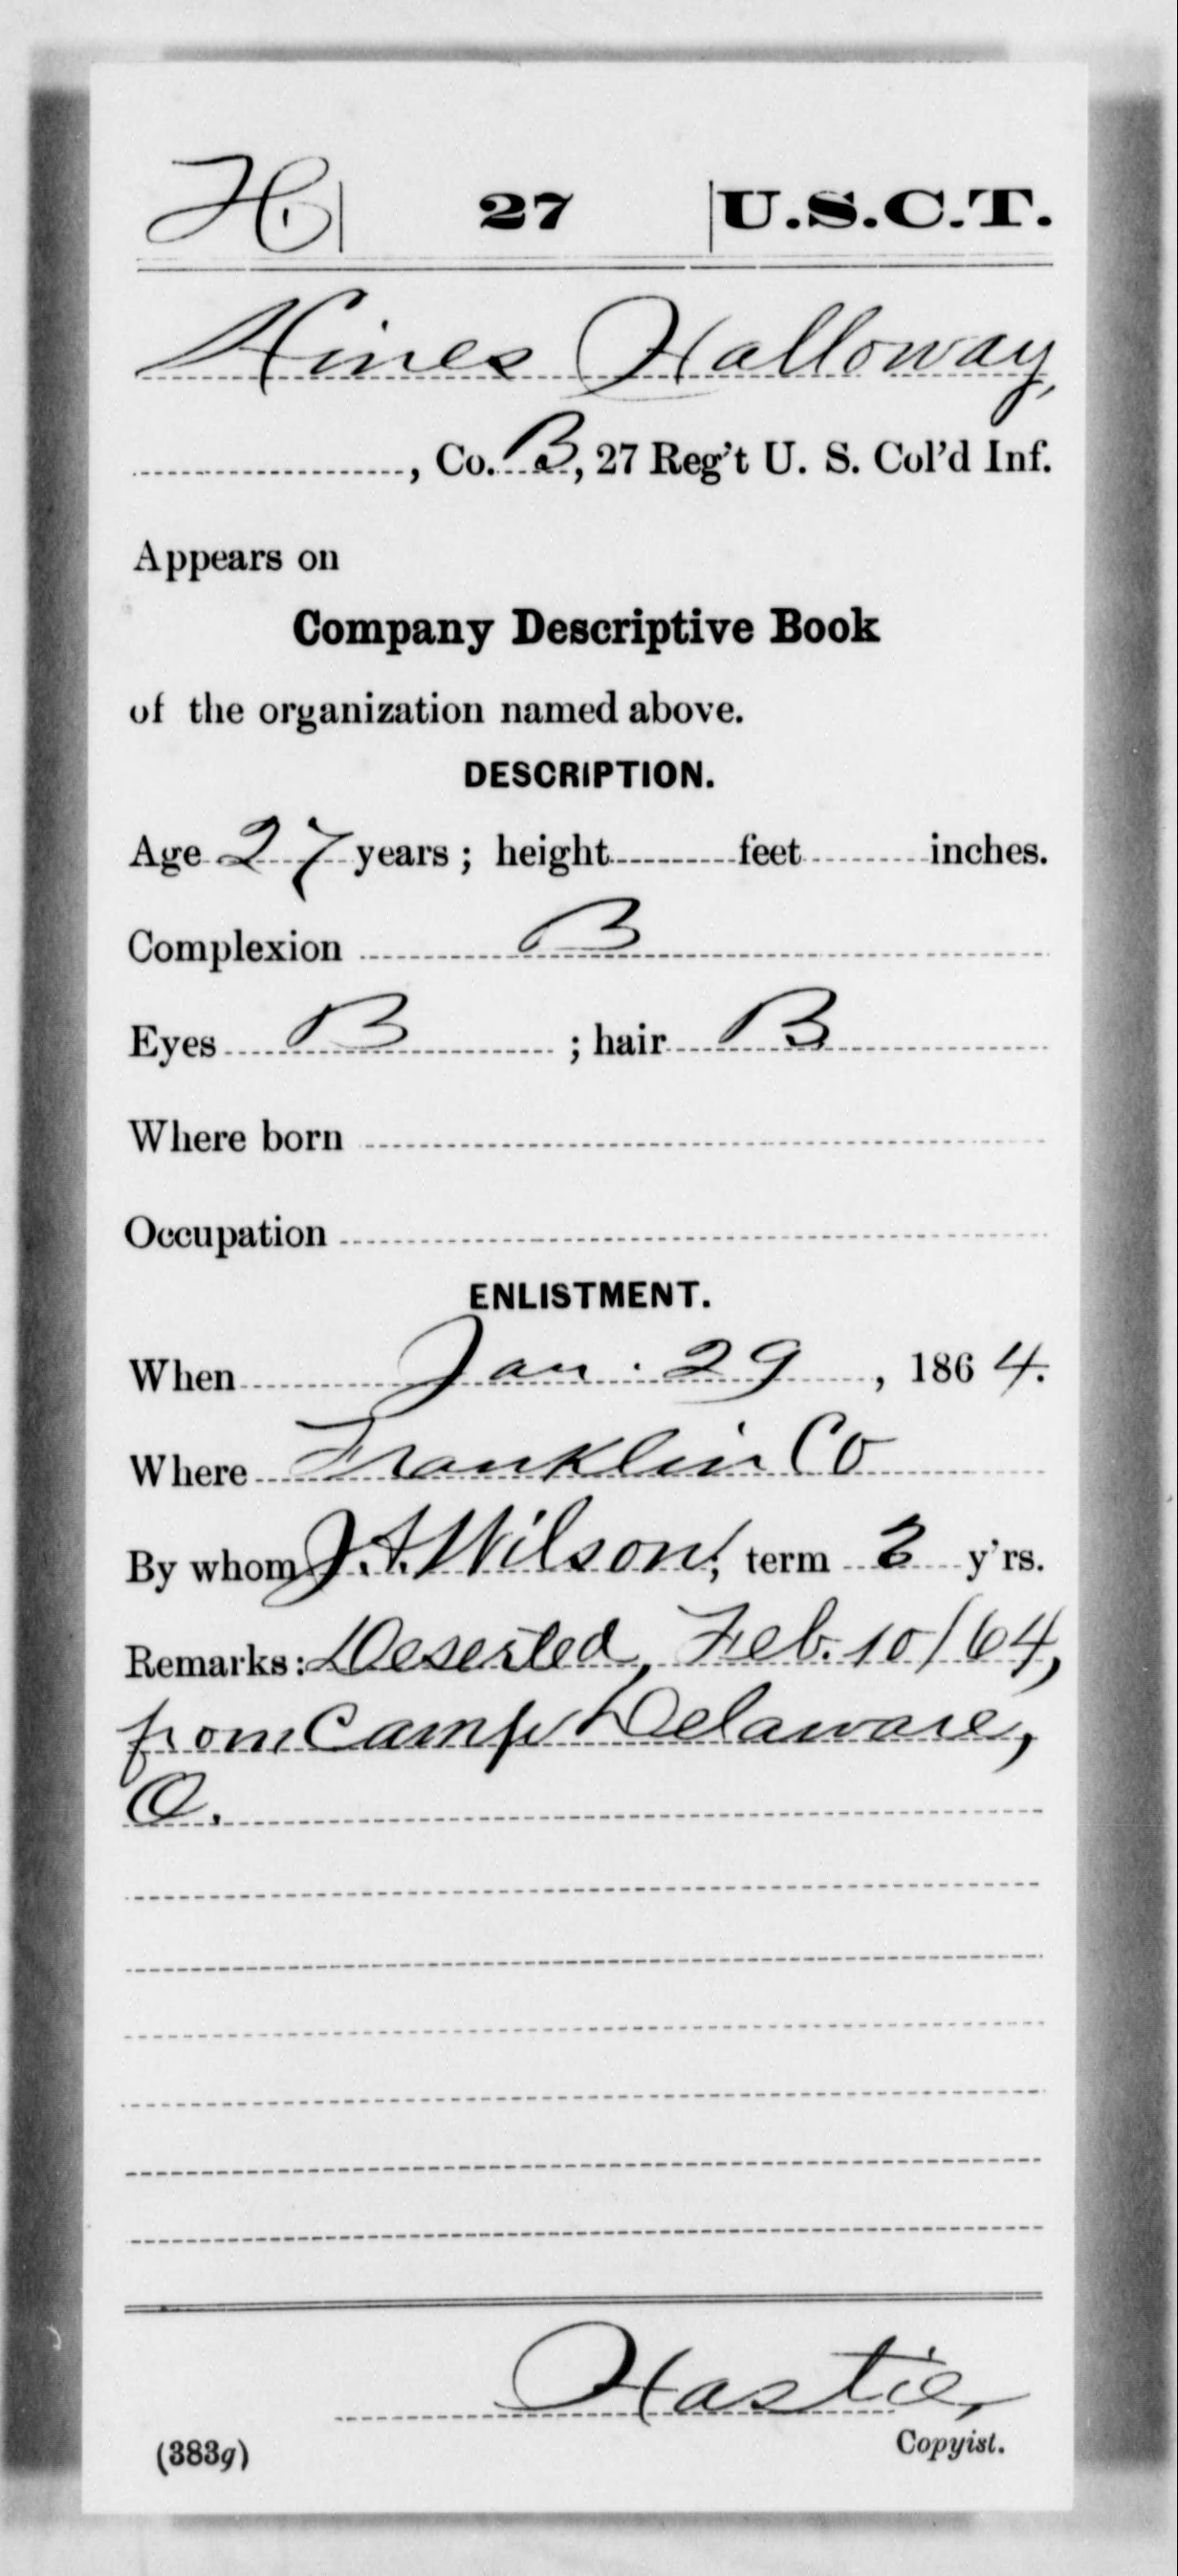 H | 27 | U.S.C.T.
Hines Halloway,
, Co. B, 27 Reg't U. S. Col'd Inf.
Appears on
Company Descriptive Book
of the organization named above.
DESCRIPTION.
Age 27 years; height feet inches.
Complexion B
Eyes B ; hair B
Where born
Occupation
ENLISTMENT.
When Jan. 29, 1864.
Where Franklin Co
By whom J.A. Wilson; term 3 y'rs.
Remarks: Deserted, Feb. 10/64,
from Camp Delaware,
O.
Hastie,
(383g) Copyist.